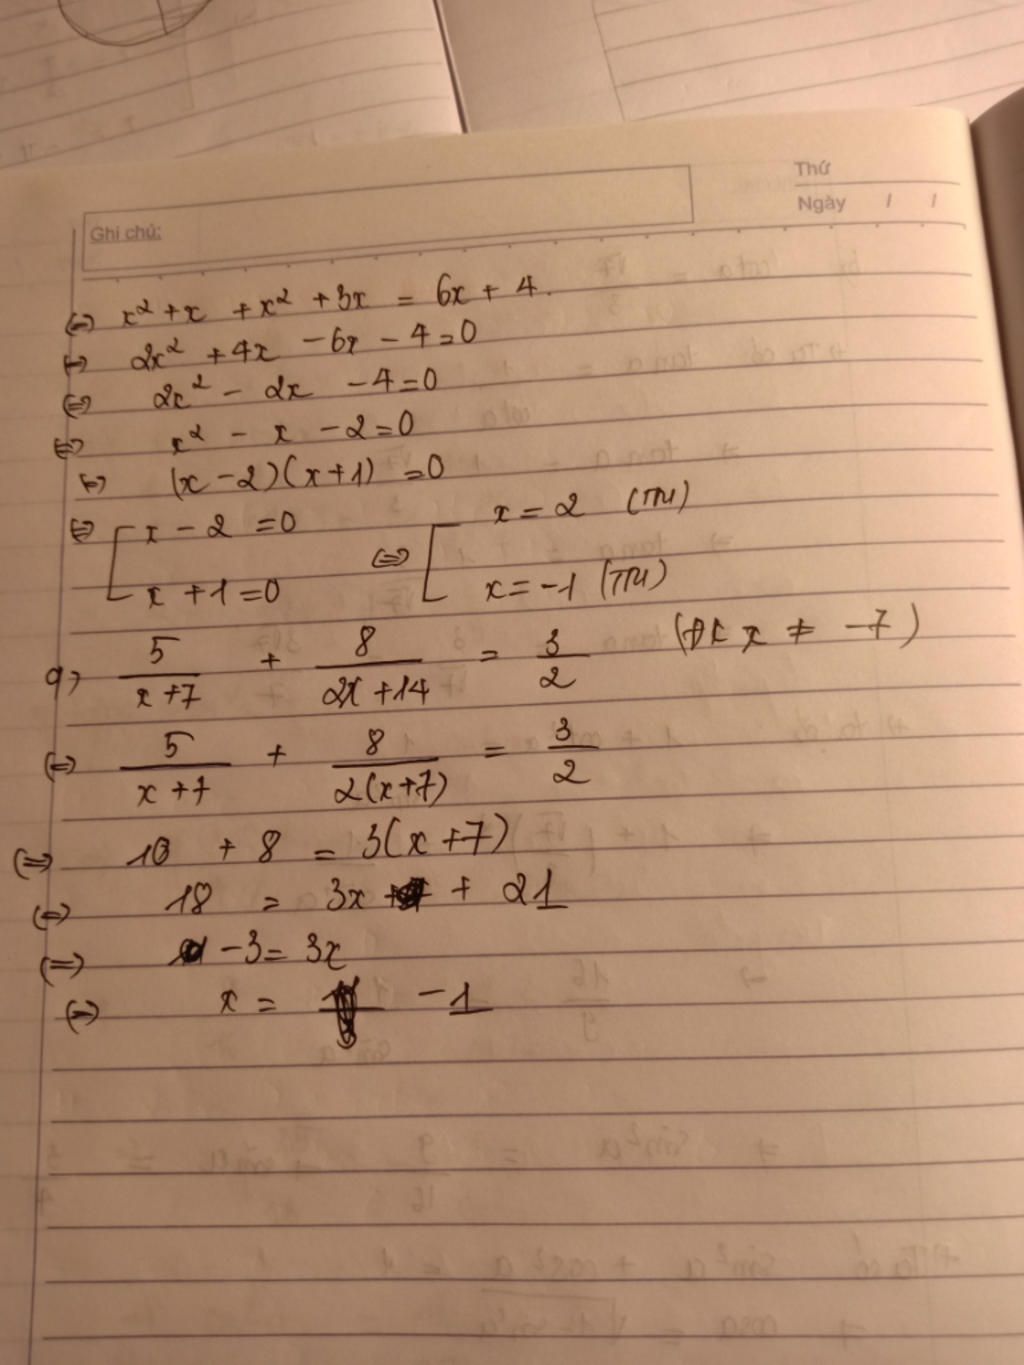 Thứ
Ngày / /
Ghi chú:
⇔ x² + x + x² + 3x = 6x + 4.
⇔ 2x² + 4x - 6x - 4 = 0
⇔ 2x² - 2x - 4 = 0
⇔ x² - x - 2 = 0
⇔ (x - 2)(x + 1) = 0
⇔ [ x - 2 = 0 ⇔ [ x = 2 (TM)
x + 1 = 0 x = -1 (TM)
9) 5/(x+7) + 8/(2x+14) = 3/2 (ĐK x ≠ -7)
⇔ 5/(x+7) + 8/(2(x+7)) = 3/2
⇔ 10 + 8 = 3(x+7)
⇔ 18 = 3x + 21
⇔ -3 = 3x
⇔ x = -1